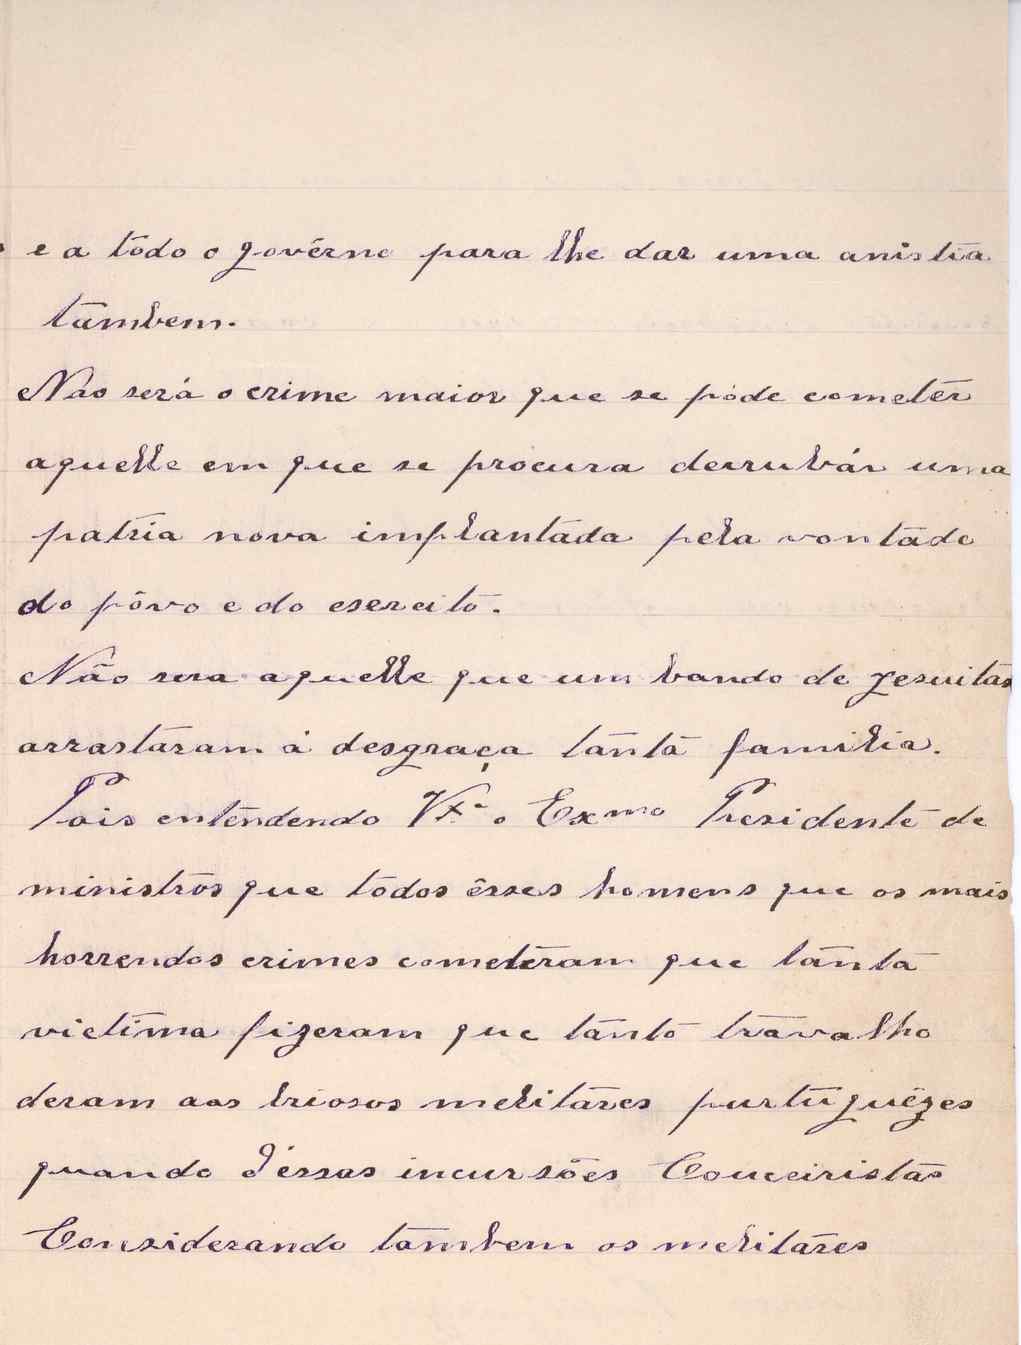 e a todo o govêrno para lhe dar uma anistia
tambem.
Não será o crime maior que se póde cometêr
aquelle em que se procura derrubár uma
patria nova implantada pela vontade
do pôvo e do esercito.
Não sera aquelle que um bando de jesuitas
arrastáram á desgraça tanta familia.
Pois entendendo V.Exª o Exmo Presidente de
ministros que todos êsses homens que os mais
horrendos crimes cometeram que tanta
victima fizeram que tanto travalho
deram aos briosos melitares purtuguêzes
quando d'éssas incursões Couceiristas
Considerando tambem os melitares